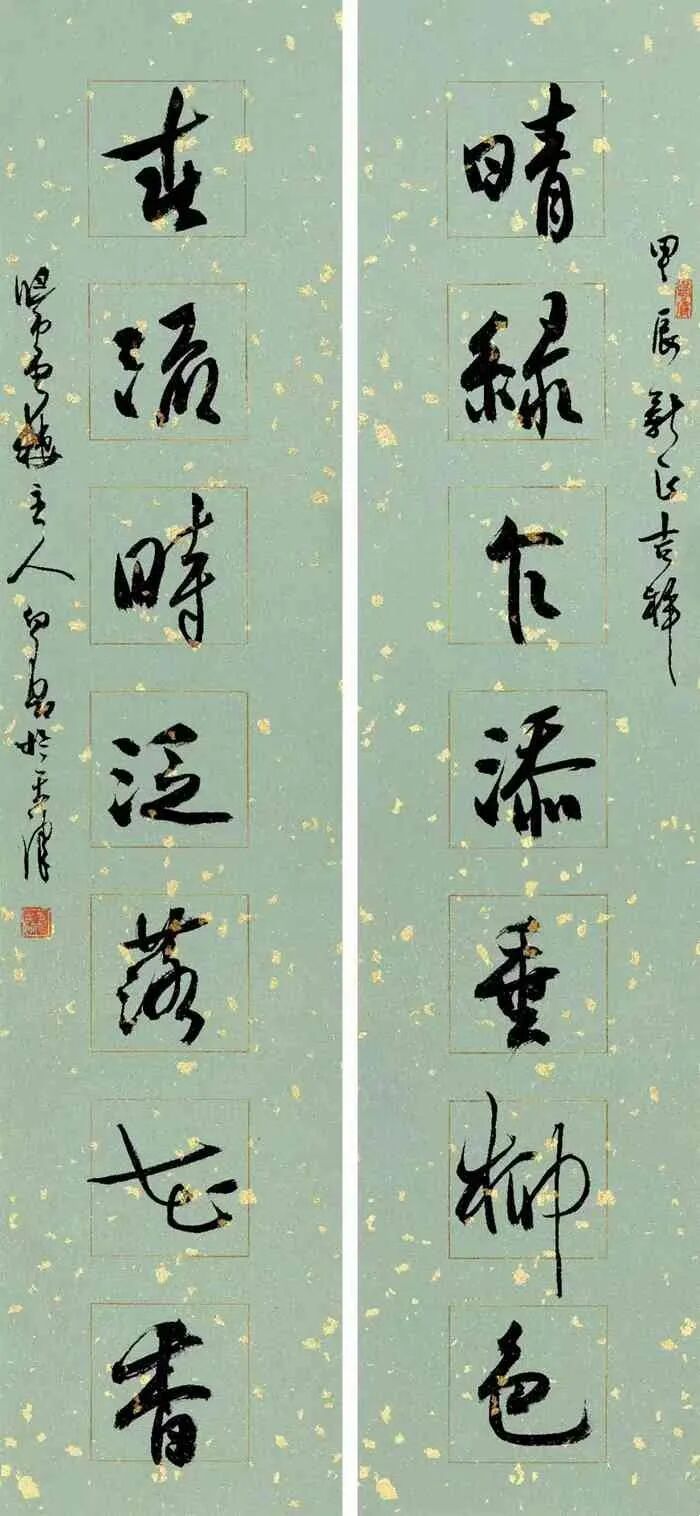 甲辰新正吉祥
晴綠乍添垂柳色
春流時泛落花香
樓主人 於天津